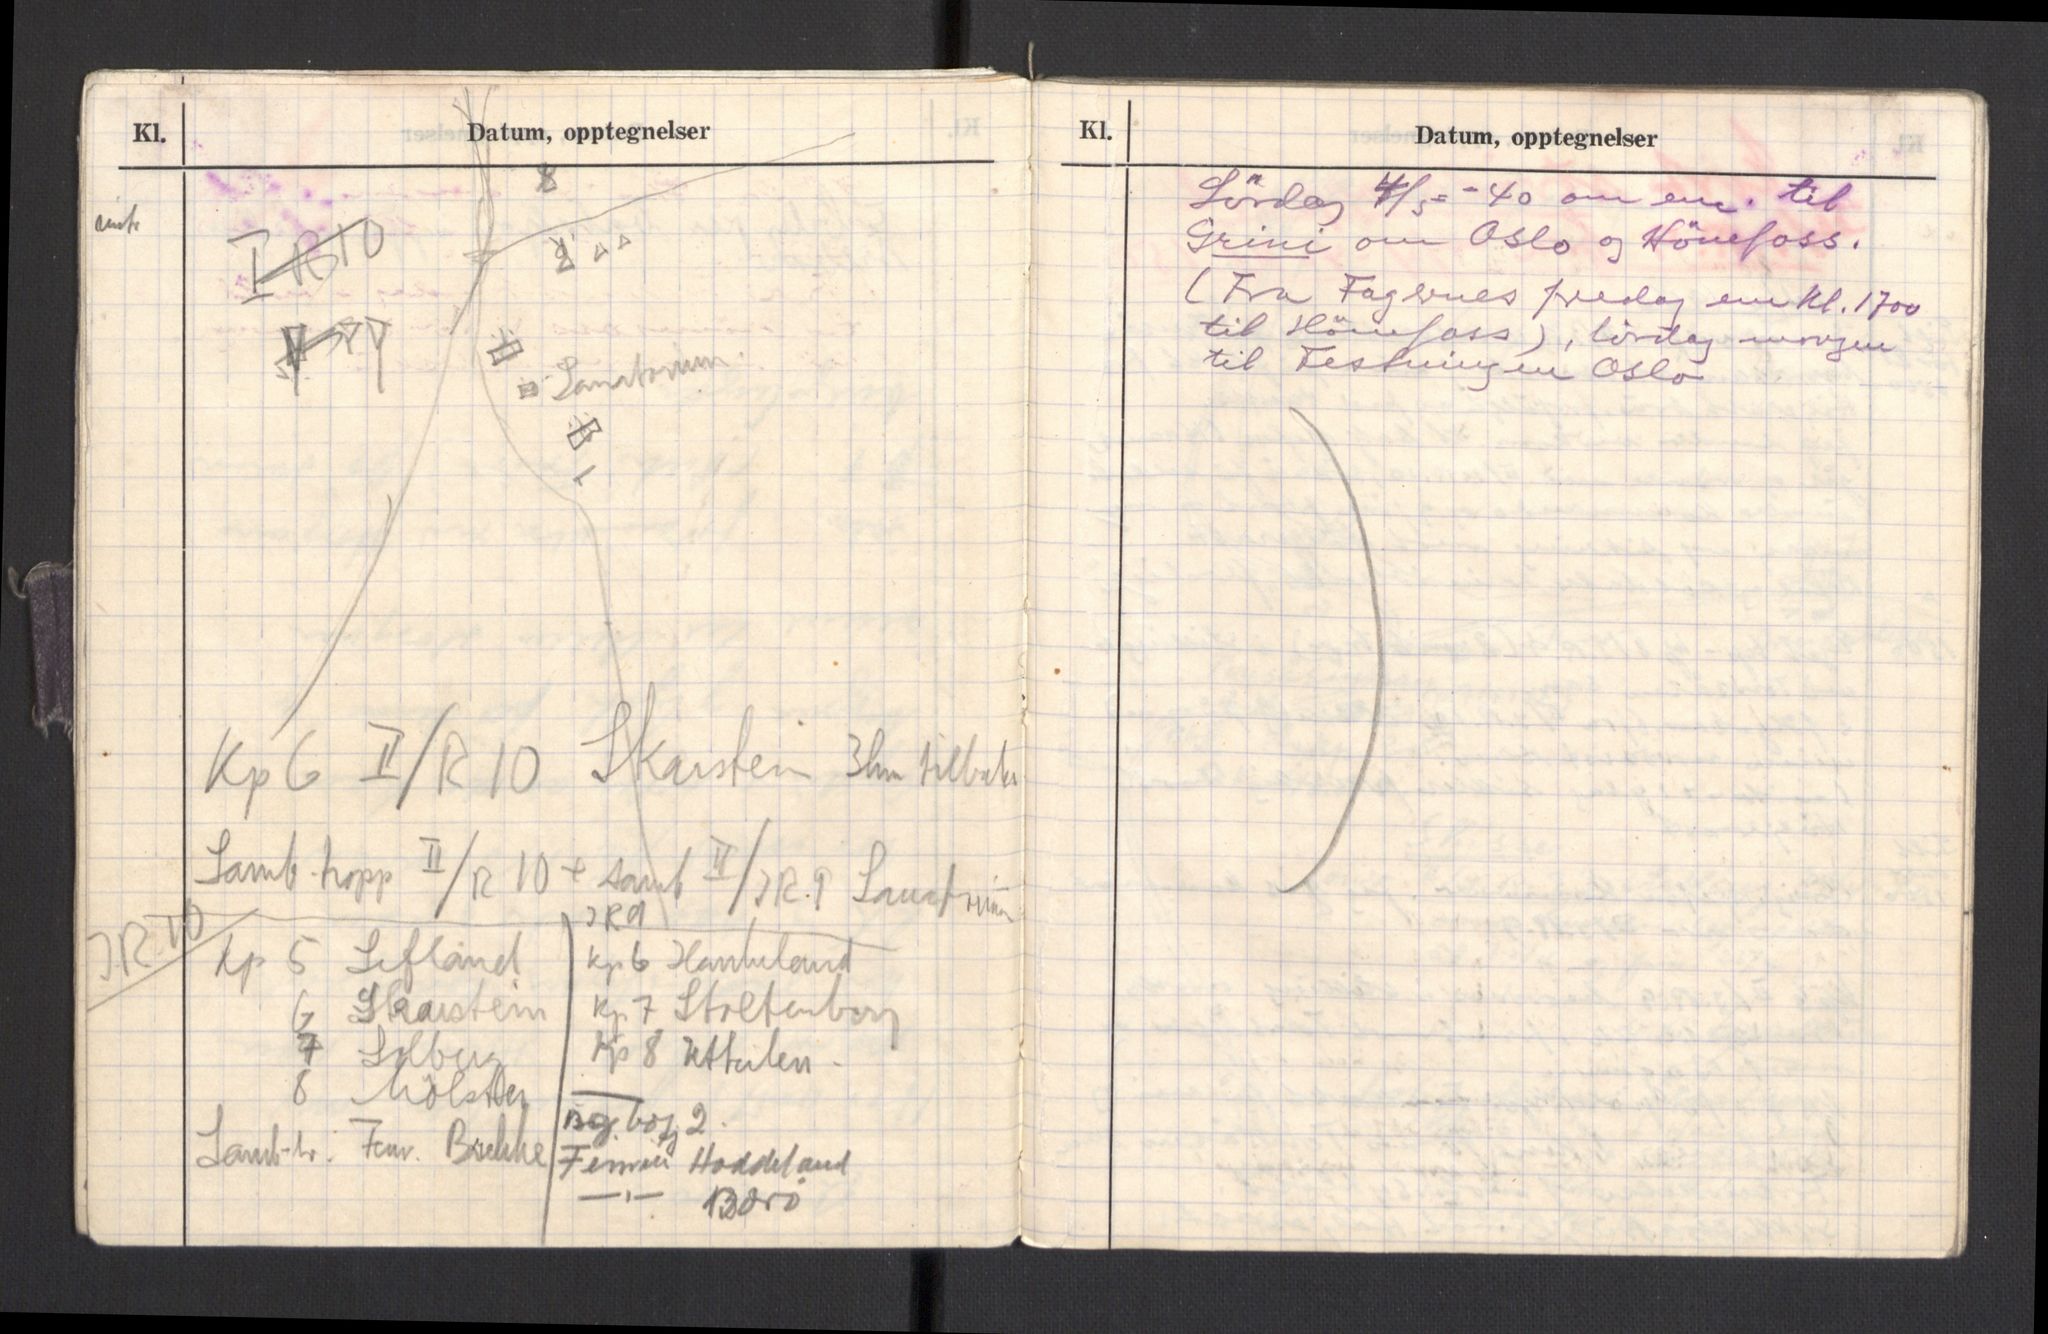 Kl. Datum, opptegnelser
8
I R 10
Sanatorium.
Kp 6 II/R 10 Skarstein 3km tilbake
Samb.tropp II/R 10 + samb II/IR.9 Sanatorium
IR 10
IR 9
Kp 5 Lefland
6 Skarstein
7 Solberg
8 Mölster
Samb-tr. Fenr. Brekke
Kp 6 Hauheland
Kp 7 Stoltenberg
Kp 8 Uttulen -
Bg. bat 2.
Fenrik Haddeland
—"— Börö
Kl. Datum, opptegnelser
Lördag 4/5 - 40 om em. til
Grini om Oslo og Hönefoss.
(Fra Fagernes fredag em Kl. 1700
til Hönefoss), lördag morgen
til Festningen Oslo